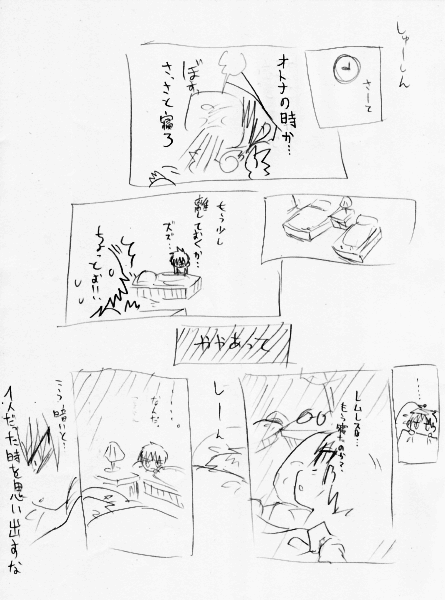 しゅーしん
さーて
オトナの時か…
ぼすっ
さっさと寝ろ
もう少し
離しておくか…
ズズ…
ちょっとぉ!!
ややあって
…
レムレスは…
もう寝たのか…?
しーん
……。
なんだ。
こう暗いと…
1人だった時を思い出すな